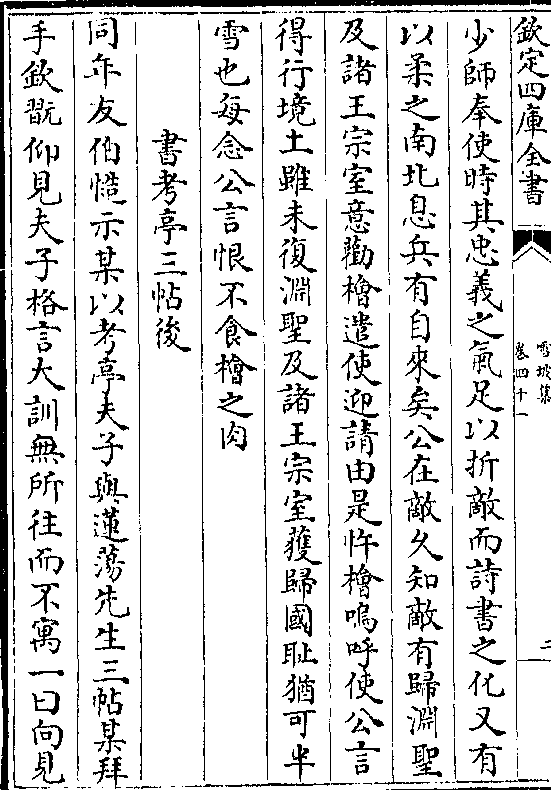 欽定四庫全書
雪坡集
卷四十一
二
少師奉使時其忠義之氣足以折敵而詩書之化又有
以柔之南北息兵有自來矣公在敵久知敵有歸淵聖
及諸王宗室意勸檜遣使迎請由是忤檜嗚呼使公言
得行境土雖未復淵聖及諸王宗室獲歸國恥猶可半
雪也每念公言恨不食檜之肉
書考亭三帖後
同年友伯慥示某以考亭夫子與蓮蕩先生三帖某拜
手欽翫仰見夫子格言大訓無所往而不寓一曰向見